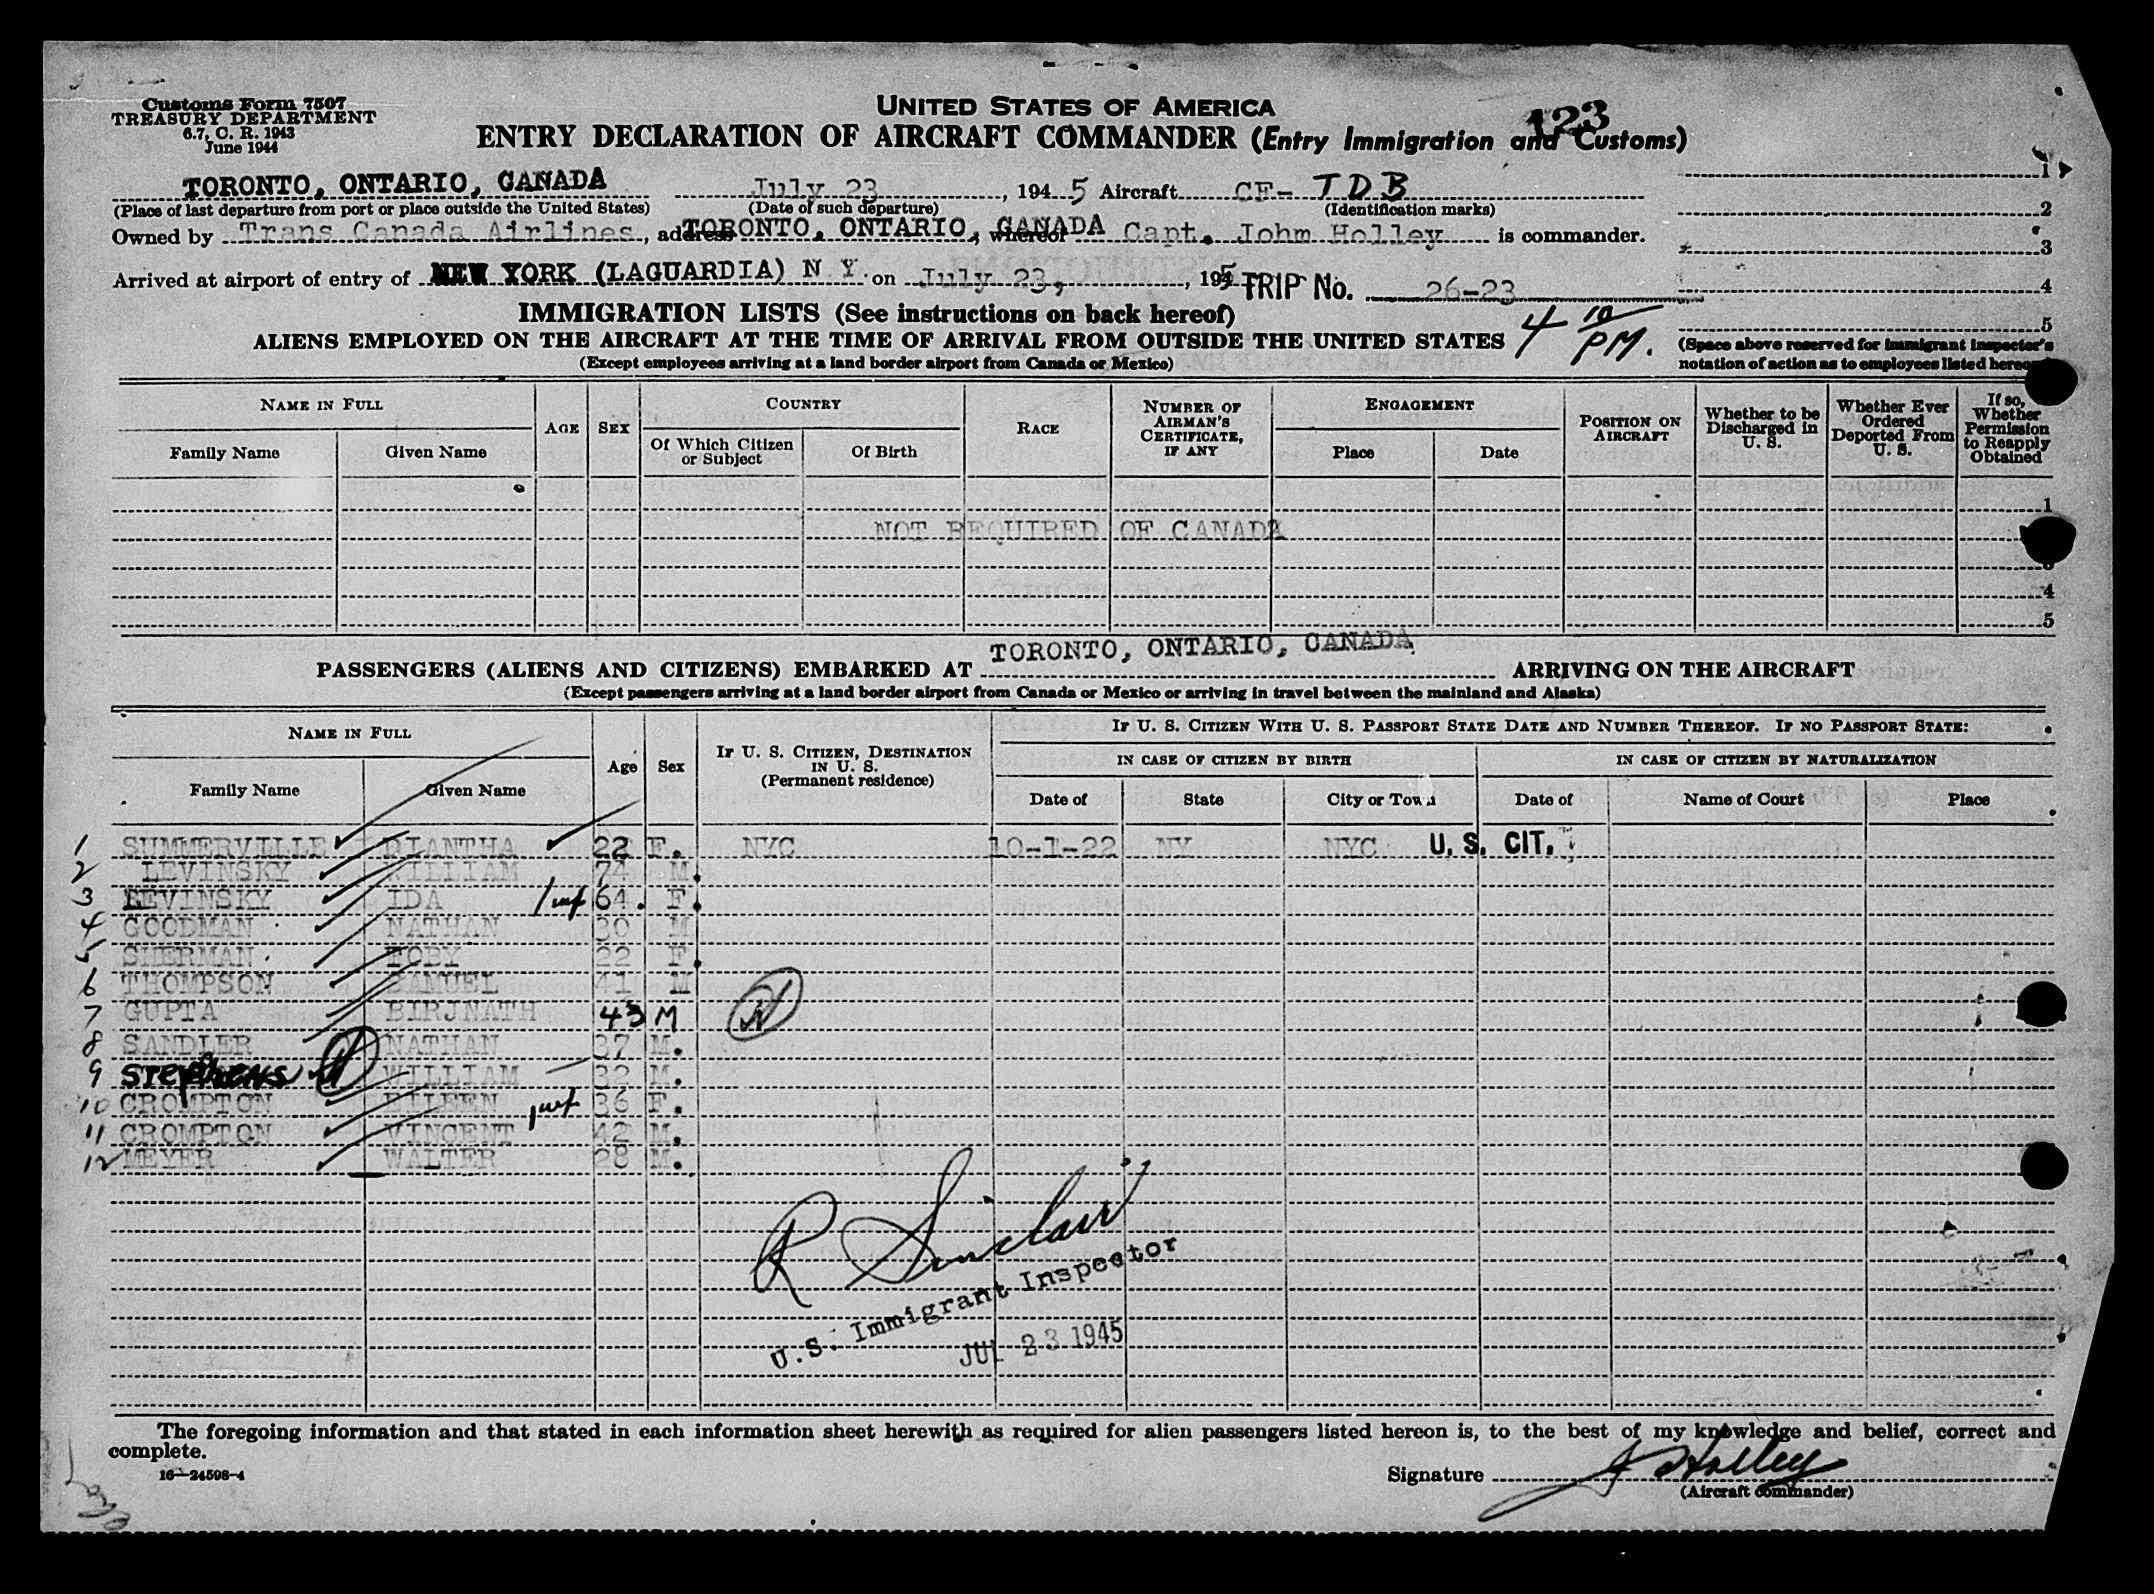 Customs Form 7507
TREASURY DEPARTMENT
6.7, C. R. 1943
June 1944
UNITED STATES OF AMERICA
ENTRY DECLARATION OF AIRCRAFT COMMANDER (Entry Immigration and Customs)
123
TORONTO, ONTARIO, CANADA July 23, 1945 Aircraft CF- TDB
(Place of last departure from port or place outside the United States) (Date of such departure) (Identification marks)
Owned by Trans Canada Airlines, address TORONTO, ONTARIO, CANADA whereof Capt. Johm Holley is commander.
Arrived at airport of entry of NEW YORK (LAGUARDIA) N Y. on July 23, 1945 TRIP No. 26-23
1
2
3
4
5
IMMIGRATION LISTS (See instructions on back hereof)
ALIENS EMPLOYED ON THE AIRCRAFT AT THE TIME OF ARRIVAL FROM OUTSIDE THE UNITED STATES 4 10 PM.
(Except employees arriving at a land border airport from Canada or Mexico)
(Space above reserved for immigrant inspector's
notation of action as to employees listed hereon
NAME IN FULL
Family Name Given Name
AGE SEX
COUNTRY
Of Which Citizen or Subject Of Birth
RACE
NUMBER OF AIRMAN'S CERTIFICATE, IF ANY
ENGAGEMENT
Place Date
POSITION ON AIRCRAFT
Whether to be Discharged in U. S.
Whether Ever Ordered Deported From U. S.
If so, Whether Permission to Reapply Obtained
1
NOT REQUIRED OF CANADA
3
4
5
PASSENGERS (ALIENS AND CITIZENS) EMBARKED AT TORONTO, ONTARIO, CANADA ARRIVING ON THE AIRCRAFT
(Except passengers arriving at a land border airport from Canada or Mexico or arriving in travel between the mainland and Alaska)
NAME IN FULL
Family Name Given Name
Age Sex
IF U. S. CITIZEN, DESTINATION IN U. S.
(Permanent residence)
IF U. S. CITIZEN WITH U. S. PASSPORT STATE DATE AND NUMBER THEREOF. IF NO PASSPORT STATE:
IN CASE OF CITIZEN BY BIRTH IN CASE OF CITIZEN BY NATURALIZATION
Date of State City or Town Date of Name of Court Place
1 SUMMERVILLE DIANTHA 22 F. NYC 10-1-22 NY NYC U. S. CIT.
2 LEVINSKY WILLIAM 74 M.
3 LEVINSKY IDA 64. F.
4 GOODMAN NATHAN 30 M
5 SHERMAN TOBY 22 F.
6 THOMPSON SAMUEL 41 M
7 GUPTA BIRJNATH 43 M
8 SANDLER NATHAN 37 M.
9 STEPHENS WILLIAM 32 M.
10 CROMPTON EILEEN 36 F.
11 CROMPTON VINCENT 42 M.
12 MEYER WALTER 28 M.
R Sinclair
U.S. Immigrant Inspector
JUL 23 1945
The foregoing information and that stated in each information sheet herewith as required for alien passengers listed hereon is, to the best of my knowledge and belief, correct and
complete.
16—24598-4
Signature J Holley
(Aircraft commander)